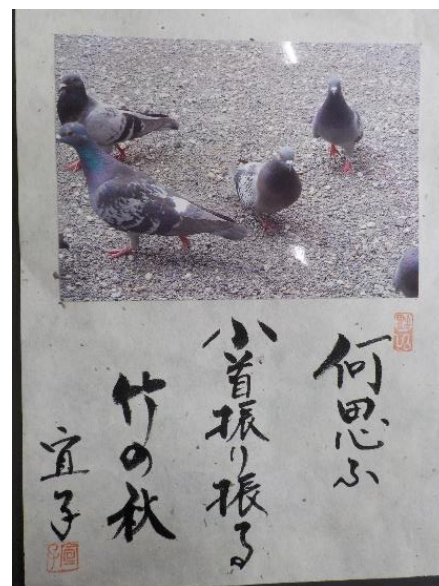 何思ふ
小首振り振る
竹の秋
宜子